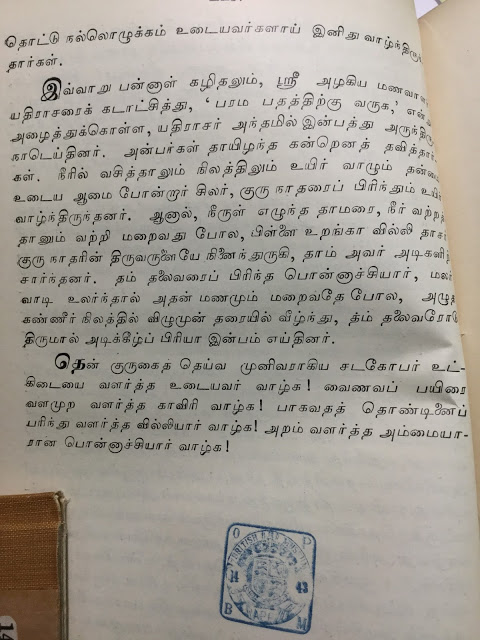 தொட்டு நல்லொழுக்கம் உடையவர்களாய் இனிது வாழ்ந்திருந்
தார்கள்.
இவ்வாறு பன்னாள் கழிதலும், ஸ்ரீ அழகிய மணவாளர்
யதிராசரைக் கடாட்சித்து, ‘பரம பதத்திற்கு வருக,’ என்று
அழைத்துக்கொள்ள, யதிராசர் அந்தமில் இன்பத்து அருந்திரு
நாடெய்தினர். அன்பர்கள் தாயிழந்த கன்றெனத் தவித்தார்
கள். நீரில் வசித்தாலும் நிலத்திலும் உயிர் வாழும் தன்மை
உடைய ஆமை போன்றார் சிலர், குரு நாதரைப் பிரிந்தும் உயிர்
வாழ்ந்திருந்தனர். ஆனால், நீருள் எழுந்த தாமரை, நீர் வற்றத்
தானும் வற்றி மறைவது போல, பிள்ளை உறங்கா வில்லி தாசர்
குரு நாதரின் திருவருளையே நினைந்துருகி, தாம் அவர் அடிகளில்
சார்ந்தனர். தம் தலைவரைப் பிரிந்த பொன்னாச்சியார், மலர்
வாடி உலர்ந்தால் அதன் மணமும் மறைவதே போல, அழுத
கண்ணீர் நிலத்தில் விழுமுன் தரையில் வீழ்ந்து, தம் தலைவரோடு
திருமால் அடிக்கீழ்ப் பிரியா இன்பம் எய்தினர்.
தென் குருகைத் தெய்வ முனிவராகிய சடகோபர் உட்-
கிடையை வளர்த்த உடையவர் வாழ்க! வைணவப் பயிரை
வளமுற வளர்த்த காவிரி வாழ்க! பாகவதத் தொண்டினைப்
பரிந்து வளர்த்த வில்லியார் வாழ்க! அறம் வளர்த்த அம்மையா-
ரான பொன்னாச்சியார் வாழ்க!
O P
BRITISH
14 43
B M
14